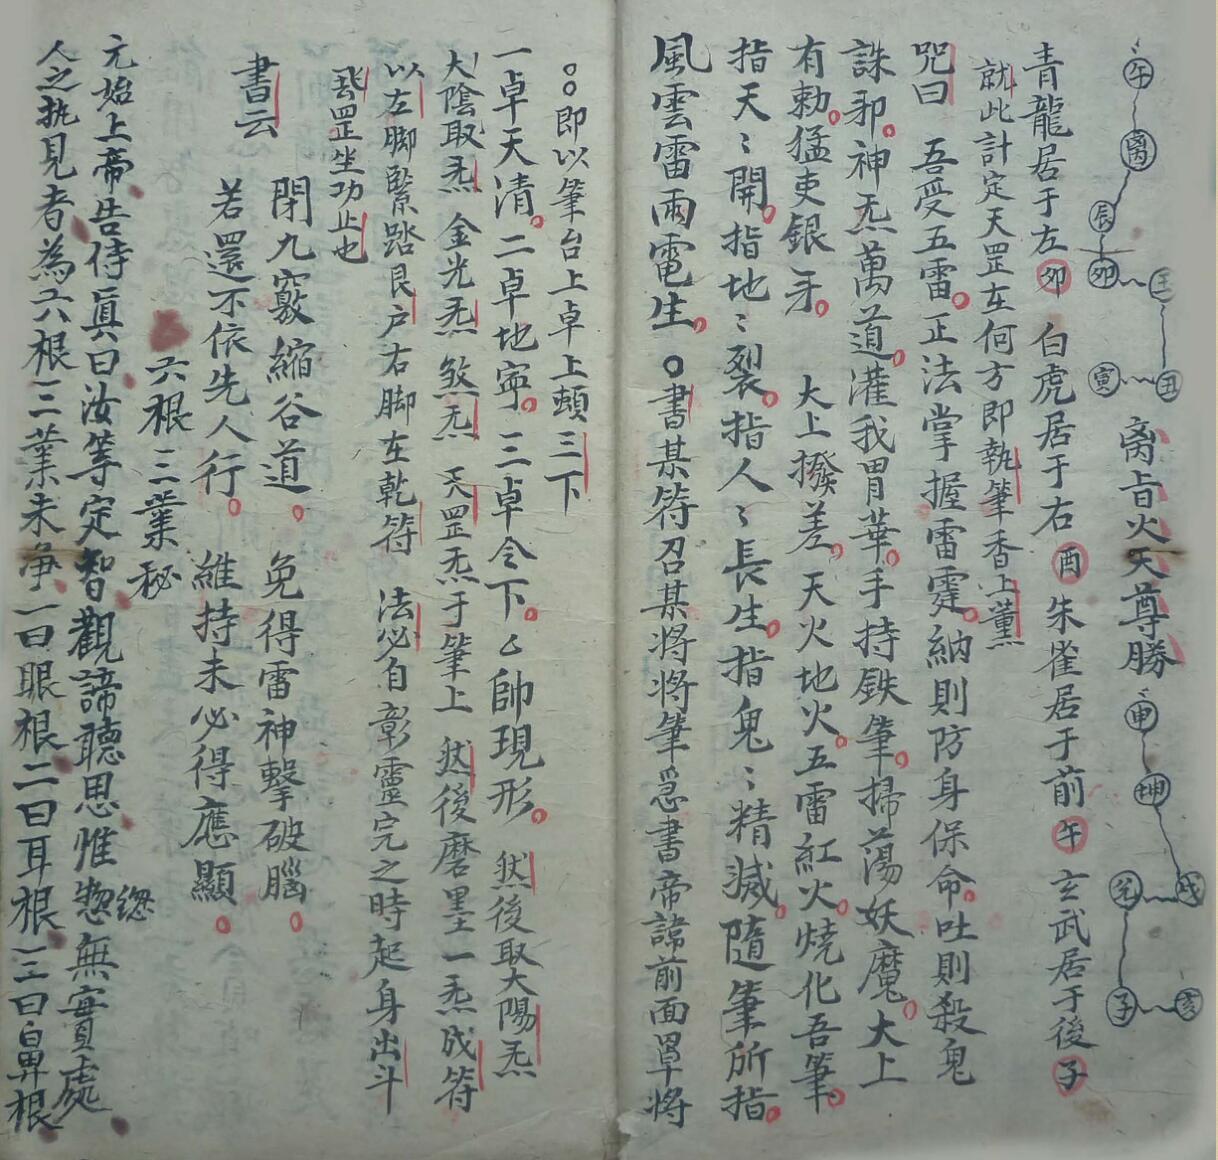 午
离
辰
卯
壬
寅
丑
离旨火天尊勝
申
坤
戌
子
亥
青龍居于左卯 白虎居于右酉 朱雀居于前午 玄武居于後子
就此計定天罡在何方即執筆香上薰
咒曰 吾受五雷正法掌握雷霆納則防身保命吐則殺鬼
誅邪神炁萬道灌我胃華手持鉄筆掃蕩妖魔大上
有勅猛吏銀牙 大上撥差天火地火五雷紅火燒化吾筆
指天〻開指地〻裂指人〻長生指鬼〻精滅隨筆所指
風雲雷雨電生〇書某符召某將將筆爲書帝諱前面罩將
〇〇即以筆台上卓上頓三下
一卓天清二卓地寧三卓令下 帥現形 然後取大陽炁
大陰取炁 金光炁 煞炁 天罡炁于筆上 然後磨墨一炁成符
以左脚緊踏艮户右脚在乾符 法必自彰靈完之時起身出斗
罡坐功止也
書云
閉九竅縮谷道 免得雷神擊破腦
若還不依先人行 維持未必得應顯
六根 三業秘
元始上帝告侍眞曰汝等定智觀諦聽思惟惣無實處
總
人之执見者為六根三業未净一曰眼根二曰耳根三曰鼻根